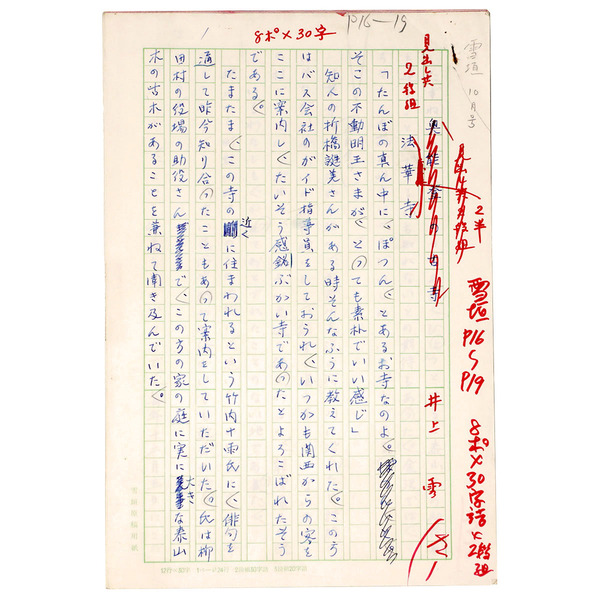 雪垣 10月号
雪垣
P16〜P19
8ポ×30字詰×2段組
2半
井上 雪
見出し共
2段組
P16—19
8ポ×30字
1
法華寺
「たんぼの真ん中に、ぽつんとあるお寺なのよ。
そこの不動明王さまが、とっても素朴でいい感じ」
知人の折橋さんがある時そんなふうに教えてくれた。この方
はバス会社のガイド指導員をしておられ、いつかも関西からの客を
ここに案内し、たいそう感銘ぶかい寺であったとよろこばれたそう
である。
たまたま、この寺の近くに住まわれるという竹内十雨氏に、俳句を
通して昨今知り合ったこともあって案内をしていただいた。氏は柳
田村の役場の助役さんで、この方の家の庭に実に大きな泰山
木の古木があることを兼ねて聞き及んでいた。